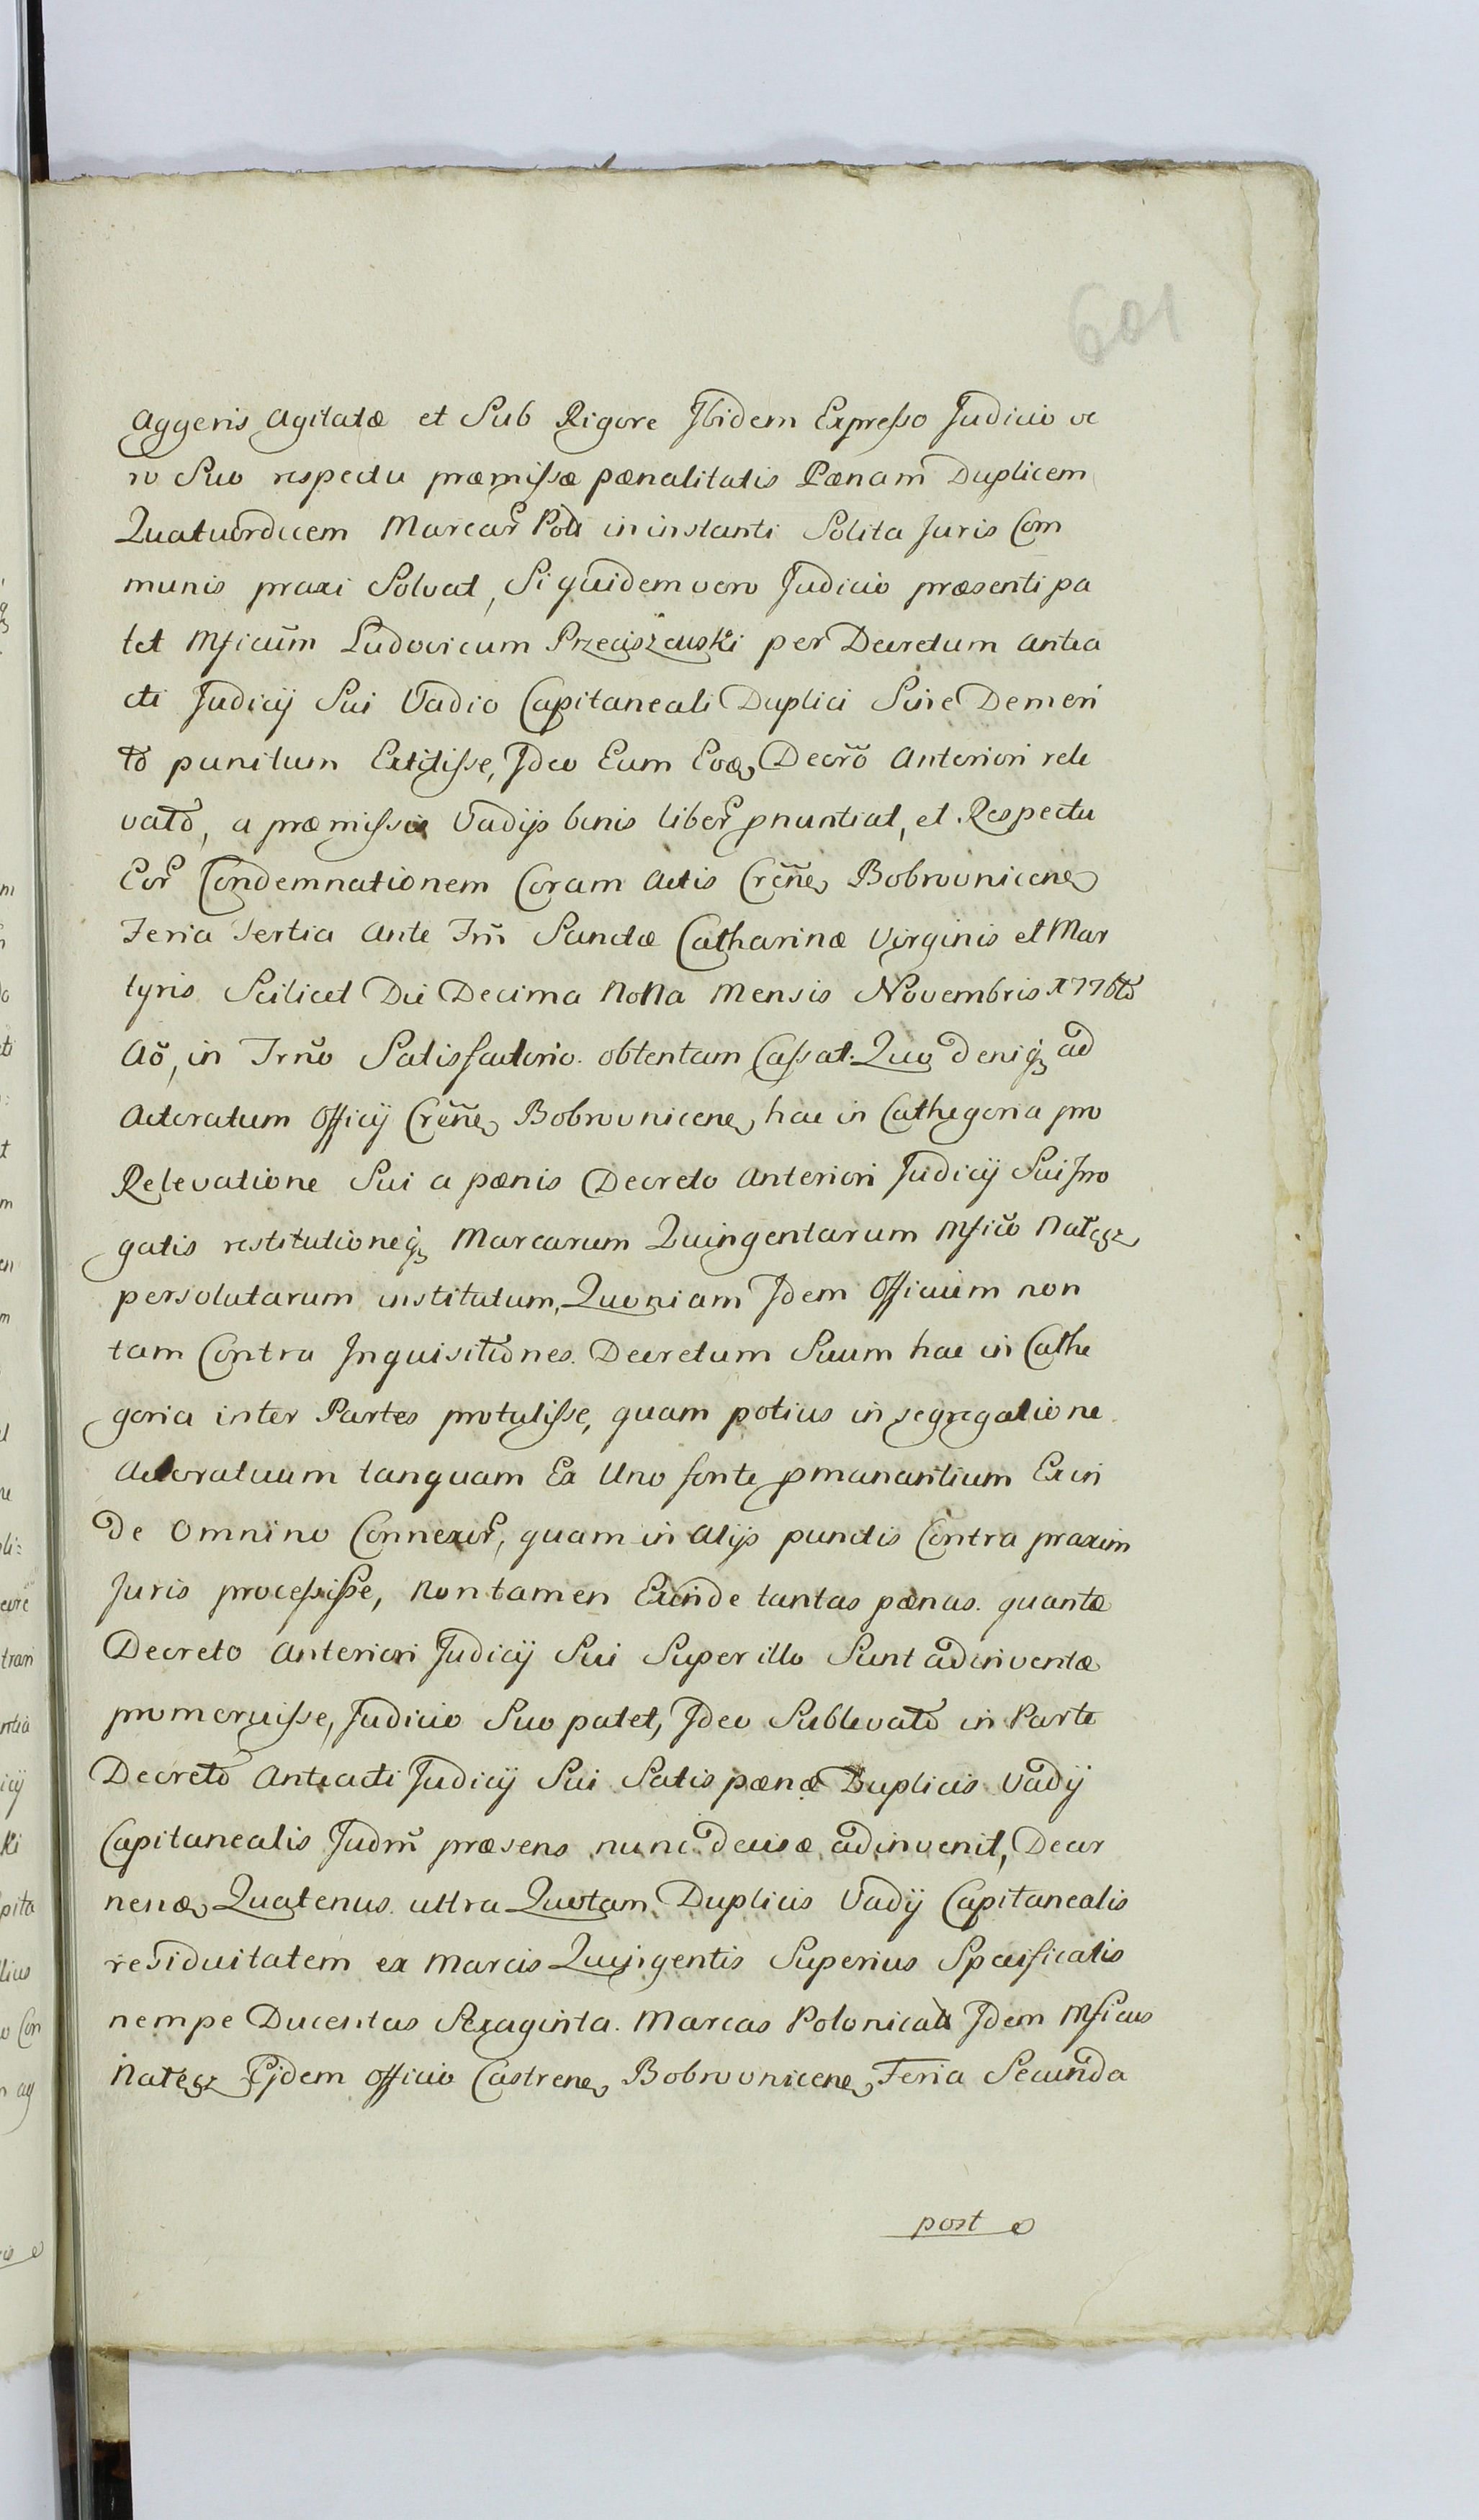 601
Aggeris Agitatæ et Sub Rigore Ibidem Expresso Judicio ve
ro Suo respectu præmissæ pænalitatis Pænam Duplicem
Quatuordecem Marcar Poll in instanti Solita Juris Com
munis praxi Solvat, Si quidem vero Judicio præsenti pa
tet Mficum Ludovicum Przeciszewski per Decretum Antea
cti Judicij Sui Vadio Capitaneali Duplici Sine Demeri
to punitum Extitisse, Ideo Eum Eoq, Decro Anteriori rele
vato, a præmissis Vadijs binis liber pnuntiat, et Respectu
Eor Condemnationem Coram Actis Crēne Bobrovnicene
Feria Tertia Ante Frm Sanctæ Catharinæ Virginis et Mar
tyris Scilicet Die Decima NoNa Mensis Novembris 1776to
Aō, in Trno Satisfactorio obtentam Cassat. Quo deniq3 ad
Actoratum Officij Crēne Bobrovnicene, hac in Cathegoria pro
Relevatione Sui a pænis Decreto Anteriori Judicij Sui Irro
gatis restitutioneq3 Marcarum Quingentarum Mfico Natęcz
persolutarum institutum, Quoniam Idem Officium non
tam Contra Inquisitiones Decretum Suum hac in Cathe
goria inter Partes protulisse, quam potius in segregatione
Actoratuum tanquam Ex Uno fonte pmanantium Exin
de Omnino Connexor, quam in Alijs punctis Contra praxim
Juris processisse, Non tamen Exinde tantas pænas quantæ
Decreto Anteriori Judicij Sui Super illo Sunt adinventæ
promeruisse, Judicio Suo patet, Ideo Sublevato in Parte
Decreto Anteacti Judicij Sui Satis pænæ Duplicis Vadij
Capitanealis Judm præsens nunc decisæ adinvenit, Decer
nenæ, Quatenus ultra Quotam Duplicis Vadij Capitanealis
residuitatem ex Marcis Quingentis Superius Specificatis
nempe Ducentas Sexaginta Marcas Polonicalł Idem Mficus
Natęcz Ejdem Officio Castrene, Bobrovnicene, Feria Secunda
post